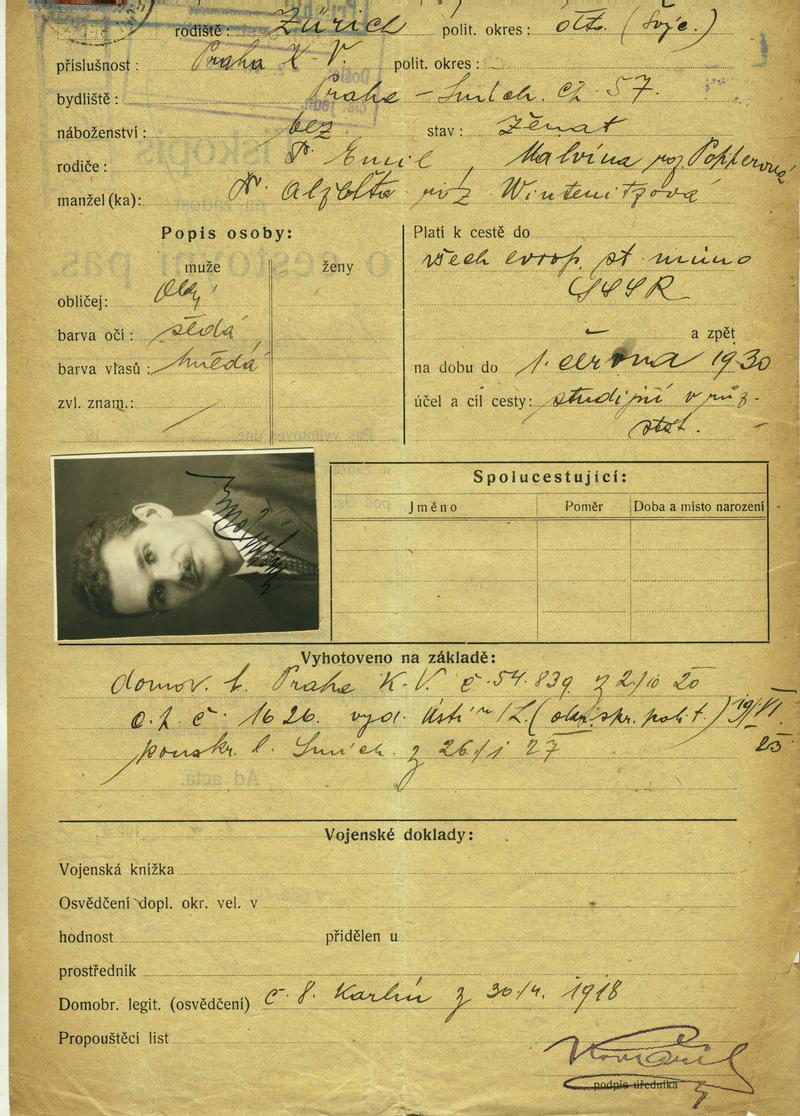 rodiště: Zürich polit. okres: dtto. (Švýc.)
příslušnost: Praha K-V. polit. okres:
bydliště: Praha - Smích. čp 57.
náboženství: bez stav: ženat
rodiče: Dr. Emil, Malvína roz. Popperová
manžel(ka): Dr. Alžběta roz Winternitzová
Popis osoby:
muže ženy
obličej:
barva očí: šedá
barva vlasů: hnědá
zvl. znam.: /
Platí k cestě do
všech evrop. st mimo
SSSR
a zpět
na dobu do 1. června 1930
účel a cíl cesty: studijní v růz-
Spolucestující:
Jméno Poměr Doba a místo narození
Vyhotoveno na základě:
domov. l. Praha K.-V. č. 54.839 z 2/10 20
c. p. č. 1626. vyd. Ústí n/L. (okr. skr. polit.) 19/VI.
25
konskr. l. Smích. z 26/1 27
Ad acta.
Vojenské doklady:
Vojenská knížka
Osvědčení dopl. okr. vel. v
hodnost přidělen u
prostředník
Domobr. legit. (osvědčení) č. 8. Karlín z 30/4. 1918
Propouštěcí list
podpis úředníka